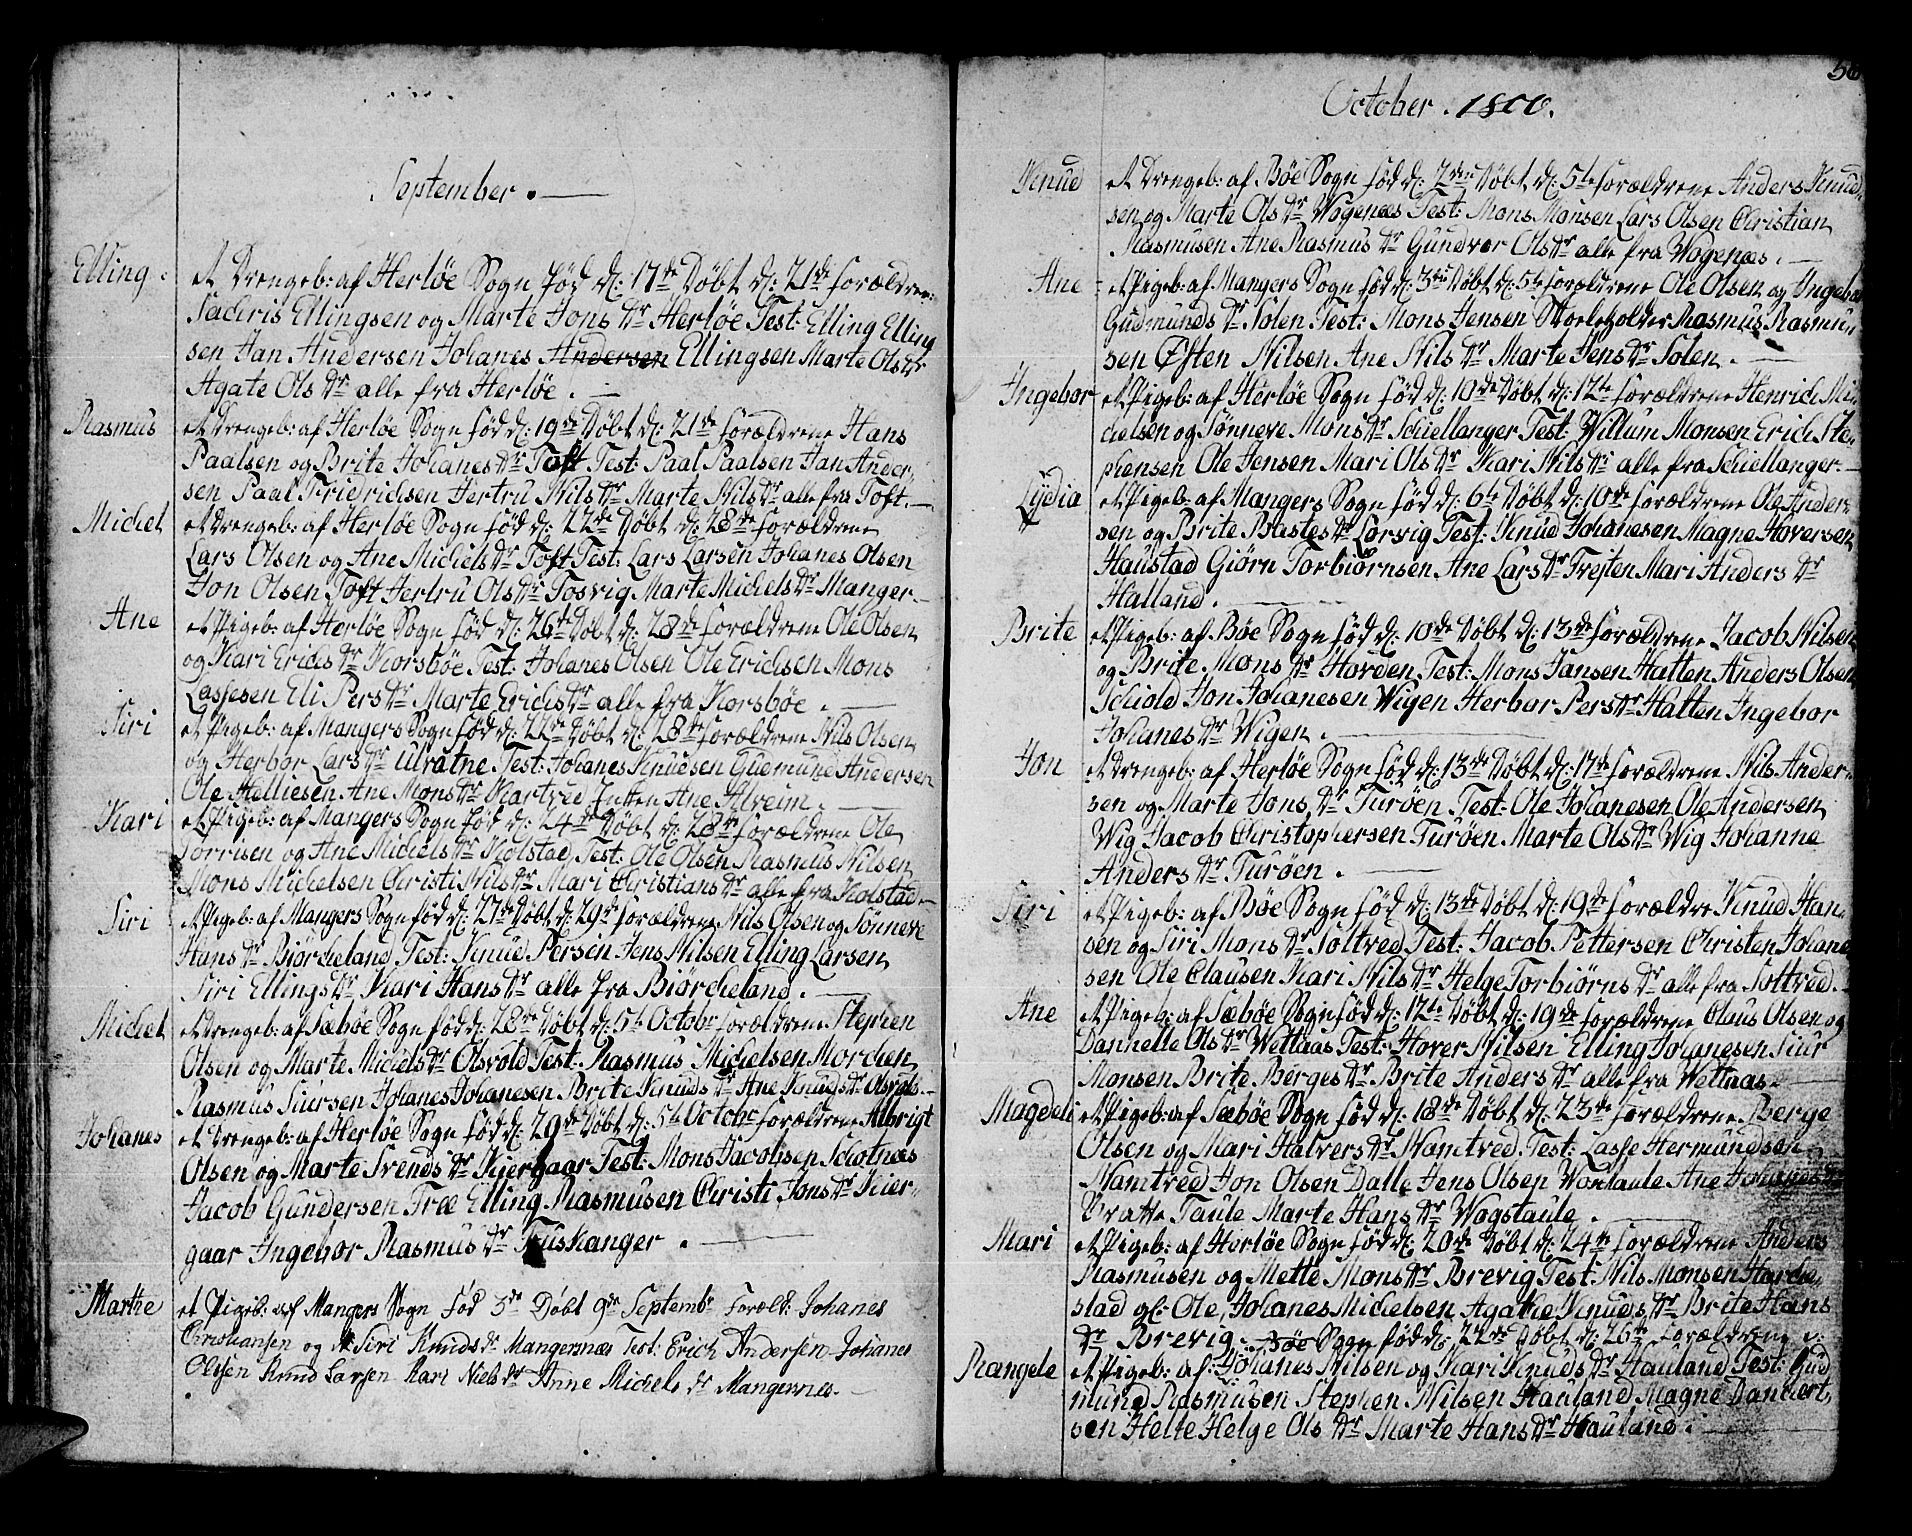 September. —
Elling. et Drengeb: af Herløe Sogn fød d: 17de Døbt d: 21de forældrene:
Sachris Ellingsen og Marte Jons Dr Herløe Test: Elling Elling
sen Jan Andersen Johanes Andersen Ellingsen Marte Ols Dr
Agate Ols Dr alle fra Herløe. —
Rasmus et Drengeb: af Herløe Sogn fød d: 19de Døbt d: 21de forældrene Hans
Paalsen og Brite Johanes Dr Toft Test: Paal Paalsen Jan Ander,
sen Paal Fridrichsen Jertru Nils Dr Marte Nils Dr alle fra Toft. —
Michel et Drengeb: af Herløe Sogn fød d: 22de Døbt d: 28de forældrene
Lars Olsen og Ane Michels Dr Toft Test: Lars Larsen Johanes Olsen
Jon Olsen Toft Jertru Ols Dr Tosvig Marte Michels Dr Manger. —
Ane et Pigeb: af Herløe Sogn fød d: 26te Døbt d: 28de forældrene Ole Olsen
og Kari Erichs Dr Korsbøe Test: Johanes Olsen Ole Erichsen Mons
Lassesen Eli Pers Dr Marte Erichs Dr alle fra Korsbøe. —
Siri et Pigeb: af Mangers Sogn fød d: 22de Døbt d: 28de forældrene Nils Olsen
og Herbor Lars Dr Ulvatne Test: Johanes Knudsen Gudmund Andersen
Ole Helliesen Ane Mons Dr Kartved Ane Alveim. —
Kari et Pigeb: af Mangers Sogn fød d: 24de Døbt d: 28de forældrene Ole
Torrisen og Ane Michels Dr Kolstad Test: Ole Olsen Rasmus Nilsen
Mons Michelsen Christi Nils Dr Mari Christians Dr alle fra Kolstad —
Siri et Pigeb: af Mangers Sogn fød d: 27de Døbt d: 29de forældrene Nils Olsen og Sønneve
Hans Dr Biørcheland Test: Knud Persen Jens Nilsen Elling Larsen
Siri Ellings Dr Kari Hans Dr alle fra Biørcheland. —
Michel et Drengeb: af Sæbøe Sogn fød d: 28de Døbt d: 5te Octobr forældrene Stephen
Olsen og Marte Michels Dr Olsvold Test: Rasmus Michelsen Morchen
Rasmus Siursen Johanes Johanesen Brite Knuds Dr Ane Knuds Dr
Johanes et Drengeb: af Herløe Sogn fød d: 29de Døbt d: 5te Octobr forældrene Albrigt
Olsen og Marte Svends Dr Kiergaar Test: Mons Jacobsen Schotnæs
Jacob Gundersen Træ Elling Rasmusen Christi Jons Dr Kier,
gaar Ingebor Rasmus Dr Tuskanger. —
Marthe et Pigeb: af Mangers Sogn fød 3de Døbt 9de Septembr Foræld: Johanes
Christiansen og Siri Knuds Dr Mangersnæs Test: Erich Andersen Johanes
Olssen Knud Larsen Kari Niels Dr Anne Michels Dr Mangernes. —
50
October. 1800.
Knud et Drengeb: af Bøe Sogn fød d: 2den Døbt d: 5te forældrene Anders Knud,
sen og Marte Ols Dr Wogenæs Test: Mons Monsen Lars Olsen Christian
Rasmusen Ane Rasmus Dr Gundvor Ols Dr alle fra Wogenæs. —
Ane et Pigeb: af Mangers Sogn fød d: 3die Døbt d: 5te forældrene Ole Olsen og Ingebor
Gudmunds Dr Solen Test: Mons Jensen Skoleholder Rasmus Rasmu,
sen Østen Nilsen Ane Nils Dr Marte Jens Dr Solen. —
Ingebor et Pigeb: af Herløe Sogn fød d: 10de Døbt d: 12te forældrene Henrich Mi,
chelsen og Sønneve Mons Dr Schiellanger Test: Willum Monsen Erich Ste,
phensen Ole Jensen Mari Ols Dr Kari Nils Dr alle fra Schiellanger. —
Lydia et Pigeb: af Mangers Sogn fød d: 6te Døbt d: 10de forældrene Ole Anders
sen og Brite Bastes Dr Lorvig Test: Knud Johanesen Magne Hoversen
Haustad Giørn Torbiørnsen Ane Lars Dr Mari Anders Dr
Halland. —
Brite et Pigeb: af Bøe Sogn fød d: 10de Døbt d: 13de forældrene Jacob Nilsen
og Brite Mons Dr Hovden Test: Mons Jansen Hatten Anders Olsen
Schiold Jon Johanesen Wigen Herbor Pers Dr Hatten Ingebor
Johanes Dr Wigen. —
Jon et Drengeb: af Herløe Sogn fød d: 13de Døbt d: 17de forældrene Nils Ander,
sen og Marte Jons Dr Turøen Test: Ole Johanesen Ole Andersen
Wig Jacob Christophersen Turøen Marte Ols Dr Wig Johanne
Anders Dr Turøen. —
Siri et Pigeb: af Bøe Sogn fød d: 13de Døbt d: 19de forældre Knud Han,
sen og Siri Mons Dr Soltved Test: Jacob Pettersen Christen Johane
sen Ole Clausen Kari Nils Dr Helge Torbiørns Dr alle fra Soltved. —
Ane et Pigeb: af Sæbøe Sogn fød d: 12te Døbt d: 19de forældrene Claus Olsen og
Dannelle Ols Dr Wettaas Test: Hover Nilsen Elling Johanesen Siur
Monsen Brite Berges Dr Brite Anders Dr alle fra Wettaas. —
Magdeli et Pigeb: af Sæbøe Sogn fød d: 18de Døbt d: 23de forældrene Berge
Olsen og Mari Halvers Dr Namtved Test: Lasse Hermundsen
Namtved Jon Olsen Dalle Jens Olsen Ane Johanes Dr
Bratte Taule Marte Hans Dr Wogstaule. —
Mari et Pigeb: af Herløe Sogn fød d: 20de Døbt d: 24de forældrene Anders
Rasmusen og Mette Mons Dr Brevig Test: Nils Monsen Horde,
stad gl: Ole, Johanes Michelsen Agathe Knuds Dr Brite Hans
Dr Brevig. — Bøe Sogn fød d: 22de Døbt d: 26te forældrene
Rangele et Pigeb: af: Johanes Nilsen og Kari Knuds Dr Hauland Test: Gud
mund Rasmusen Stephen Nilsen Hauland Magne Danchert,
sen Helle Helge Ols Dr Marte Hans Dr Hauland. —